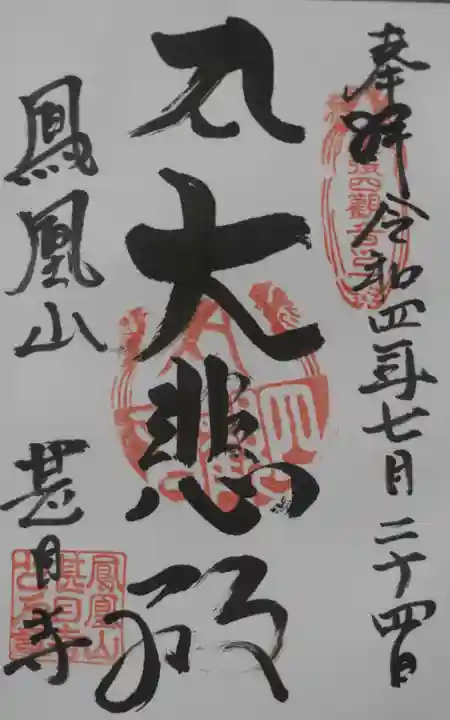 奉拝 令和四年七月二十四日
大悲殿
鳳凰山 甚目寺
鳳凰山
甚目寺